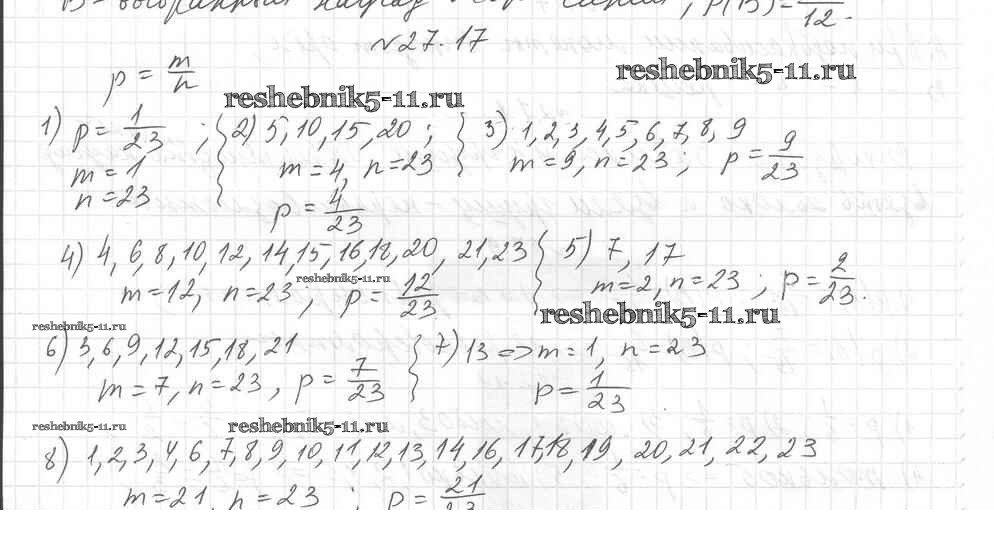 P(B) = /12.
№27.17
p = m/n
reshebnik5-11.ru
reshebnik5-11.ru
1) p = 1/23 ;
m = 1
n = 23
2) 5, 10, 15, 20 ;
m = 4, n = 23
p = 4/23
3) 1, 2, 3, 4, 5, 6, 7, 8, 9
m = 9, n = 23 ; p = 9/23
4) 4, 6, 8, 10, 12, 14, 15, 16, 18, 20, 21, 23
reshebnik5-11.ru
m = 12, n = 23 ; p = 12/23
5) 7, 17
m = 2, n = 23 ; p = 2/23.
reshebnik5-11.ru
reshebnik5-11.ru
6) 3, 6, 9, 12, 15, 18, 21
m = 7, n = 23, p = 7/23
7) 13 => m = 1, n = 23
p = 1/23
reshebnik5-11.ru
reshebnik5-11.ru
8) 1, 2, 3, 4, 6, 7, 8, 9, 10, 11, 12, 13, 14, 16, 17, 18, 19, 20, 21, 22, 23
m = 21, n = 23 ; p = 21/23